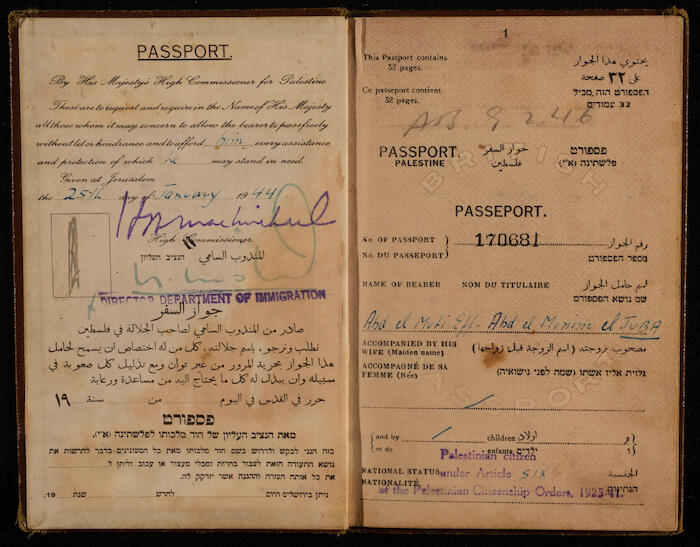 PASSPORT.
By His Majesty's High Commissioner for Palestine
These are to request and require in the Name of His Majesty
all those whom it may concern to allow the bearer to pass freely
without let or hindrance and to afford him every assistance
and protection of which he may stand in need.
Given at Jerusalem
the 25th day of January 1944
High Commissioner
المندوب السامي הנציב העליון
DIRECTOR DEPARTMENT OF IMMIGRATION
جواز السفر
صادر من المندوب السامي لصاحب الجلالة في فلسطين
نطلب ونرجو، باسم جلالته، كل من له اختصاص ان يسمح لحامل
هذا الجواز بحرية المرور من غير توان ومع تذليل كل صعوبة في
سبيله وان يبذل له كل ما يحتاج اليه من مساعدة ورعاية
حرر في القدس في اليوم — من — سنة ١٩
פספורט
מאת הנציב העליון של הוד מלכותו לפלשתינה (א"י).
בזה הנני לבקש ולדרוש בשם הוד מלכותו מאת כל המעונינים בדבר להרשות את
נושא התעודה הזאת לעבור בחרות ומבלי מעצור או עכוב וליתן לו
את כל אותה העזרה וההגנה אשר יזדקק לה.
ניתן בירושלים היום לחדש שנת 19.
1
This Passport contains
32 pages.
يحتوي هذا الجواز
على ٣٢ صفحة
Ce passeport contient
32 pages.
הפספורט הזה מכיל
32 עמודים
9 2.46
PASSPORT.
PALESTINE
جواز السفر
فلسطين
פספורט
פלשתינה (א"י)
BRITISH
PASSEPORT.
No. OF PASSPORT
No. DU PASSEPORT
170681
رقم الجواز
מספר הפספורט
NAME OF BEARER NOM DU TITULAIRE
اسم حامل الجواز
שם נושא הפספורט
Abd el Muti Eff. Abd el Munim el JUBA
ACCOMPANIED BY HIS
WIFE (Maiden name)
مصحوب بزوجته (اسم الزوجة قبل زواجها)
ACCOMPAGNÉ DE SA
FEMME (Née)
נלוית אליו אשתו (שמה לפני נישואיה)
PASSPORT
and by children اولاد و
et de enfants ילדים ו
Palestinian citizen
NATIONAL STATUS under Article SIX الجنسية
NATIONALITÉ of the Palestinian Citizenship Orders, 1925-41. הנתינות